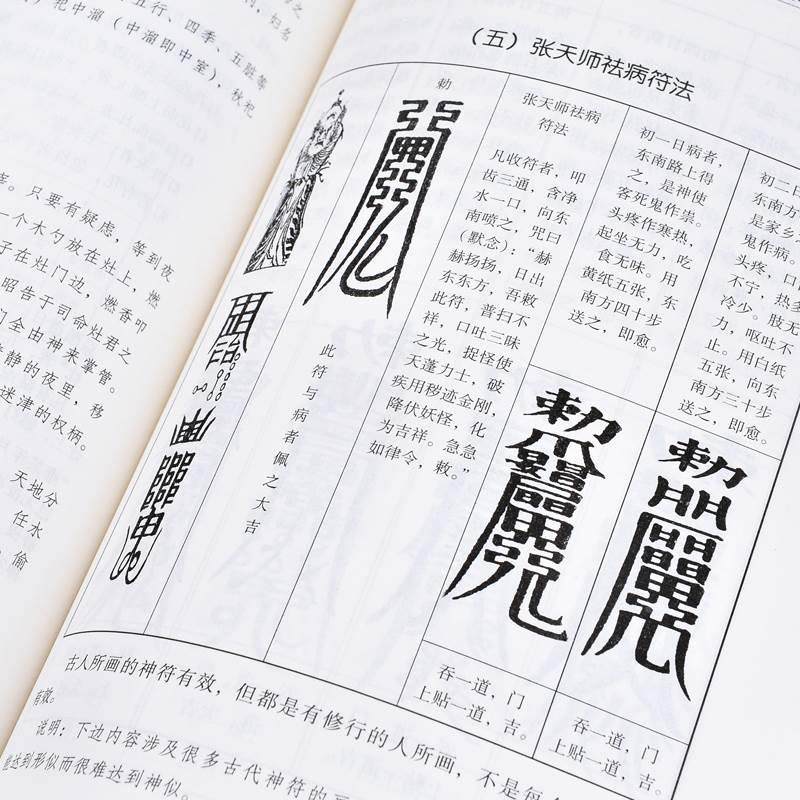 五行、四季、五脏等
祀中溜（中溜即中室），秋祀
只要有疑虑，等到夜
一个木勺放在灶上，燃
子在灶门边，燃香叩
昭告于司命灶君之
门全由神来掌管。
静的夜里，移
迷津的权柄。
天地分
任水
偷
（五）张天师祛病符法
勅
此符与病者佩之大吉
张天师祛病
符法
凡收符者，叩
齿三通，含净
水一口，向东
南喷之，咒曰
（默念）：“赫
赫扬扬，日出
东东方，吾敕
此符，普扫不
祥，口吐三昧
之光，捉怪使
天蓬力士，破
疾用秽迹金刚，
降伏妖怪，化
为吉祥。急急
如律令，敕。”
初一日病者，
东南路上得
之，是神使
客死鬼作祟。
头疼作寒热，
起坐无力，吃
食无味。用
黄纸五张，东
南方四十步
送之，即愈。
勅
吞一道，门
上贴一道，吉。
初二日
东南方
是家乡
鬼作病。
头疼，口
不宁，热多
冷少。肢无
力，呕吐不
止。用白纸
五张，向东
南方三十步
送之，即愈。
勅
吞一道，门
上贴一道，吉。
古人所画的神符有效，但都是有修行的人所画，不是每
有效。
说明：下边内容涉及很多古代神符的
达到形似而很难达到神似。